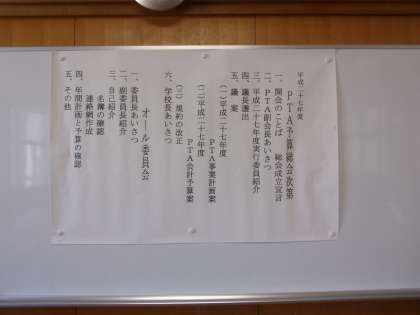 平成二十七年度
ＰＴＡ予算総会次第
一、開会のことば　総会成立宣言
二、ＰＴＡ副会長あいさつ
三、平成二十七年度実行委員紹介
四、議長選出
五、議案
（一）平成二十七年度
ＰＴＡ事業計画案
（二）平成二十七年度
ＰＴＡ会計予算案
（三）規約の改正
六、学校長あいさつ
オール委員会
一、委員長あいさつ
二、副委員長紹介
三、自己紹介
名簿の確認
連絡網作成
四、年間計画と予算の確認
五、その他